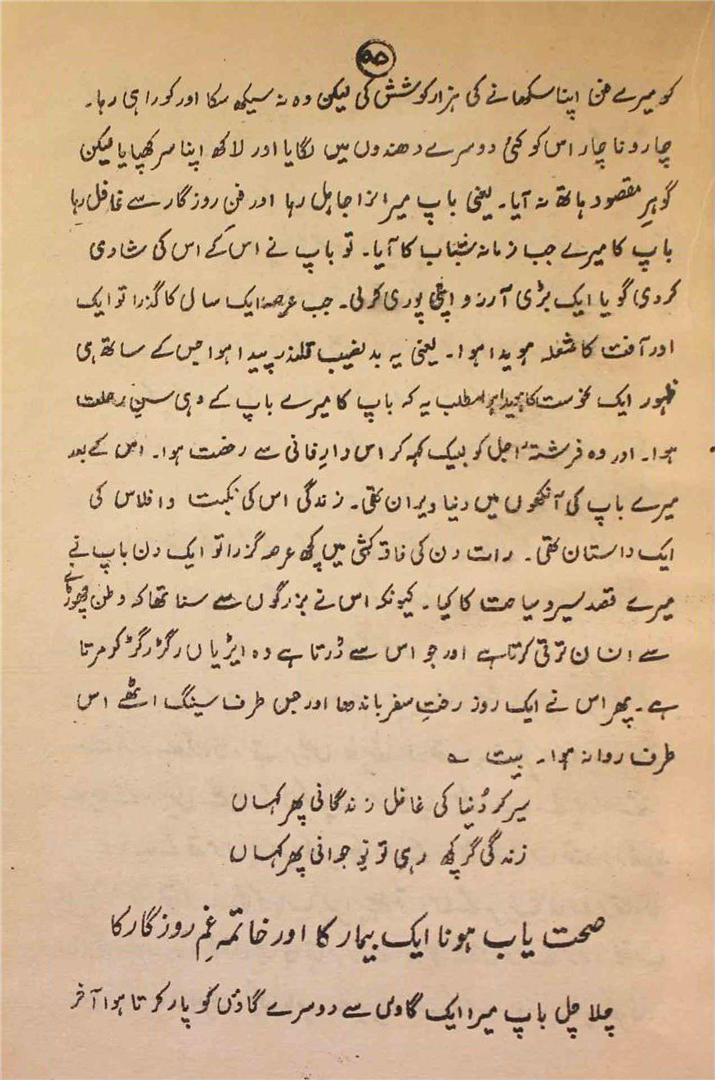 ۵۵
کو میرے فن اپنا سکھانے کی ہزار کوشش کی لیکن وہ نہ سیکھ سکا اور کورا ہی رہا۔
چار و ناچار اس کو کئی دوسرے دھندوں میں لگایا اور لاکھ اپنا سر کھپایا لیکن
گوہرِ مقصود ہاتھ نہ آیا۔ یعنی باپ میرا نرا جاہل رہا اور فنِ روزگار سے غافل رہا
باپ کا میرے جب زمانہ شباب کا آیا۔ تو باپ نے اس کے اس کی شادی
کردی گویا ایک بڑی آرزو اپنی پوری کرلی۔ جب عرصہ ایک سال کا گذرا تو ایک
اور آفت کا شعلہ ہویدا ہوا۔ یعنی یہ بدنصیب قلندر پیدا ہوا جس کے ساتھ ہی
ظہور ایک نحوست کا ہویدا ہوا مطلب یہ کہ باپ کا میرے باپ کے وہی سنِ رحلت
ہوا۔ اور وہ فرشتۂ اجل کو لبیک کہہ کر اس دارِ فانی سے رخصت ہوا۔ اس کے بعد
میرے باپ کی آنکھوں میں دنیا ویران تھی۔ زندگی اس کی نکبت و افلاس کی
ایک داستان تھی۔ رات دن کی فاقہ کشی میں کچھ عرصہ گزرا تو ایک دن باپ نے
میرے قصد سیر و سیاحت کا کیا۔ کیونکہ اس نے بزرگوں سے سنا تھا کہ وطن چھوڑنے
سے انسان ترقی کرتا ہے اور جو اس سے ڈرتا ہے وہ ایڑیاں رگڑ رگڑ کو مرتا
ہے۔ پھر اس نے ایک روز رختِ سفر باندھا اور جس طرف سینگ اٹھے اس
طرف روانہ ہوا۔ بیت ؎
سیر کر دُنیا کی غافل زندگانی پھر کہاں
زندگی گر کچھ رہی تو نوجوانی پھر کہاں
صحت یاب ہونا ایک بیمار کا اور خاتمہ غمِ روزگار کا
چلا چل باپ میرا ایک گاوں سے دوسرے گاؤں کو پار کرتا ہوا آخر